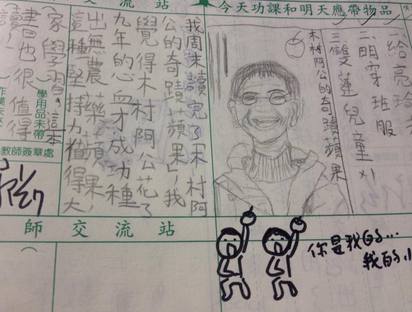 今天功課和明天應帶物品
一給亮玲
二明穿班服
三雙蓮兒童刈
木村阿公的奇蹟蘋果
交流站
我周末讀完了木村阿
公的奇蹟蘋果」我
覺得木村阿公花了
九年的心血才成功種
出無農藥蘋果，
這種堅持力值得大
家學習，這本
書也很值得
學用品未帶
教師簽章處
師交流站
你是我的...